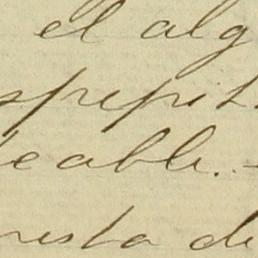 el alg
spepit
eable.-
resta de